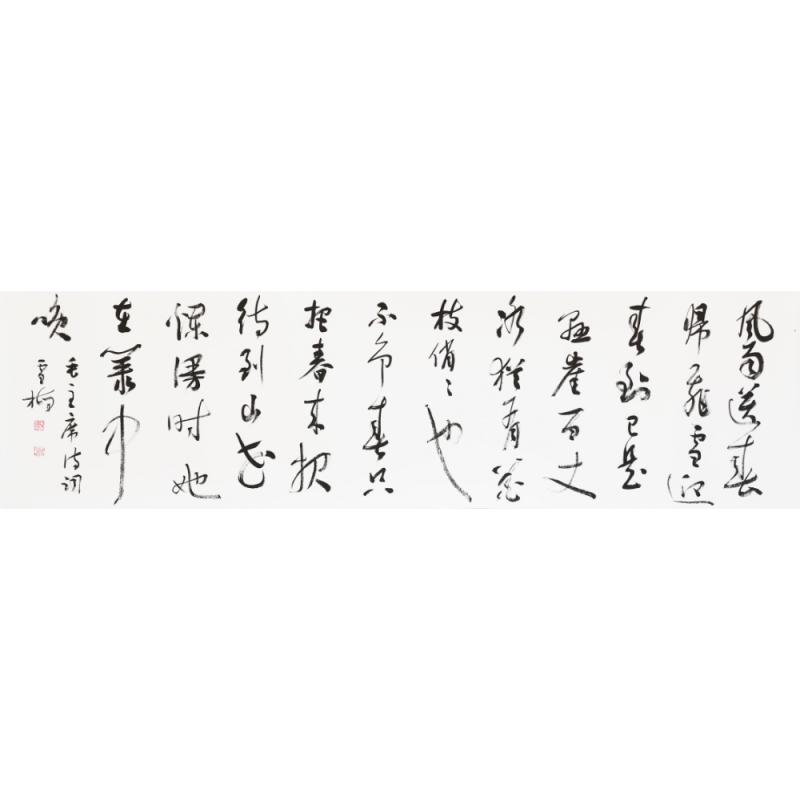 風雨送春
歸飛雪迎
春到已是
懸崖百丈
冰猶有花
枝俏々也
不争春只
把春来报
待到山花
爛漫时她
在叢中
咲
毛主席诗词
雪